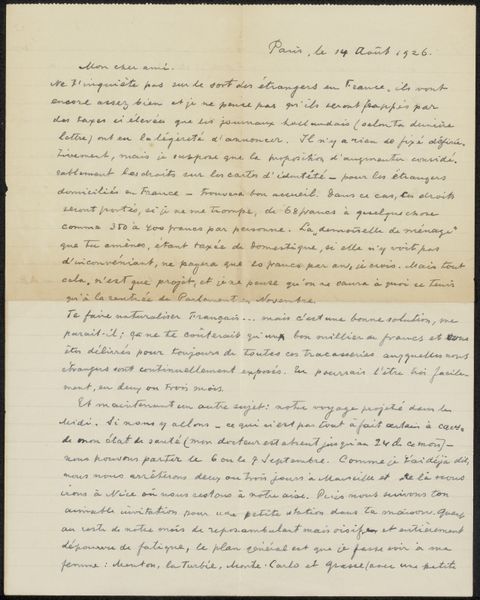 Paris, le 14 Août 1926.
Mon cher ami.
Ne t'inquiète pas sur le sort des étrangers en France, ils vont
encore assez bien et je ne pense pas qu'ils seront frappés par
des taxes si élevée que les journaux hollandais (selon ta dernière
lettre) ont eu la légèreté d'annoncer. Il n'y a rien de fixé définie-
tivement, mais je suppose que la proposition d'augmenter consid-
rablement les droits sur les cartes d'identité – pour les étrangers
domiciliés en France – trouvera bon accueil. Dans ce cas, les droits
seront portés, si je ne me trompe, de 68 francs à quelque chose
comme 350 à 400 francs par personne. La „demoiselle de ménage"
que tu amènes, étant taxée de domestique, si elle n'y voit pas
d'inconvéniant, ne payera que 10 francs par an, je crois. Mais tout
cela, n'est que projet, et je ne pense qu'on ne saura à quoi se tenir
qu'à la rentrée de Parlament en Novembre.
Te faire naturaliser Français... mais c'est une bonne solution, me
parait-il; ça ne te coûterait qu'un bon millier de francs et vous
êtes délivrés pour toujours de toutes ces tracasseries auxquelles nous
étrangers sont continuellement exposés. Tu pourrais l'être très facile-
ment, en deux ou trois mois.
Et maintenant un autre sujet: notre voyage projeté dans le
Midi. Si nous y allons – ce qui n'est pas tout à fait certain à cause
de mon état de santé (mon docteur est absent jusqu'au 24 de ce mois) –
nous pouvons partir le 6 ou le 7 Septembre. Comme je t'ai déjà dit,
nous nous arrêterons deux ou trois jours à Marseille et de là nous
irons à Nice où nous restons à notre aise. Puis nous suivons ton
aimable invitation pour une petite station dans ta maison. Quant
au reste de notre mois de repos ambulant mais oisif et entièrement
dépourvu de fatigue, le plan général est que je fasse voir à ma
femme: Menton, la Turbie, Monte-Carlo et Grasse (avec une petite